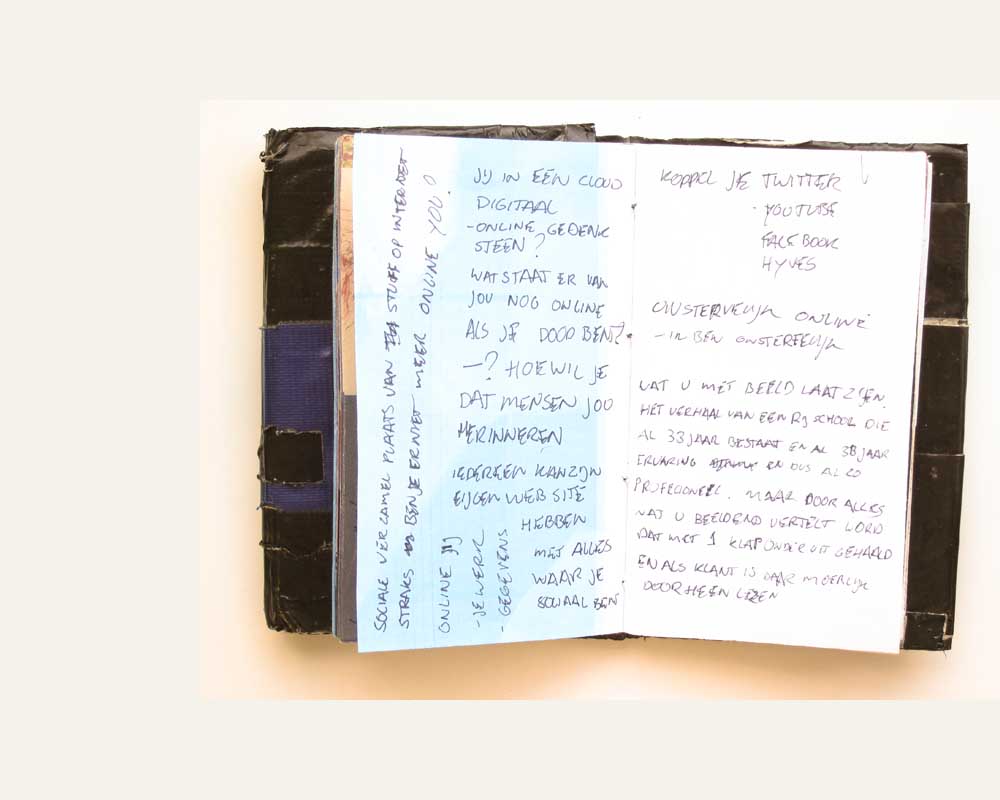 SOCIALE VERZAMEL PLAATS VAN STUFF OP INTERNET
STRAKS BEN JE ER NIET MEER ONLINE YOU.
ONLINE JIJ
- JE WERK
- GEGEVENS
JIJ IN EEN CLOUD
DIGITAAL
- ONLINE GEDENK
STEEN?
WAT STAAT ER VAN
JOU NOG ONLINE
ALS JE DOOD BENT?
—? HOE WIL JE
DAT MENSEN JOU
HERINNEREN
IEDEREEN KAN ZIJN
EIJGEN WEB SITE
HEBBEN
MET ALLES
WAAR JE
SOCIAAL BEN
KOPPEL JE TWITTER
- YOUTUBE
FACEBOOK
HYVES
ONLINE
- IK BEN ONSTERFELIJK
WAT U MET BEELD LAAT ZIEN.
HET VERHAAL VAN EEN RIJSCHOOL DIE
AL 33 JAAR BESTAAT EN AL 33 JAAR
ERVARING EN DUS AL ZO
PROFESIONEEL. MAAR DOOR ALLES
WAT U BEELDEND VERTELT WORD
DAT MET 1 KLAP ONDERUIT GEHAALD
EN ALS KLANT IS DAAR MOEILIJK
DOORHEEN LEZEN